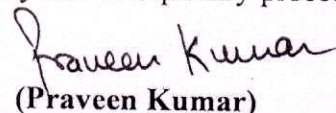 Praveen Kumar
(Praveen Kumar)